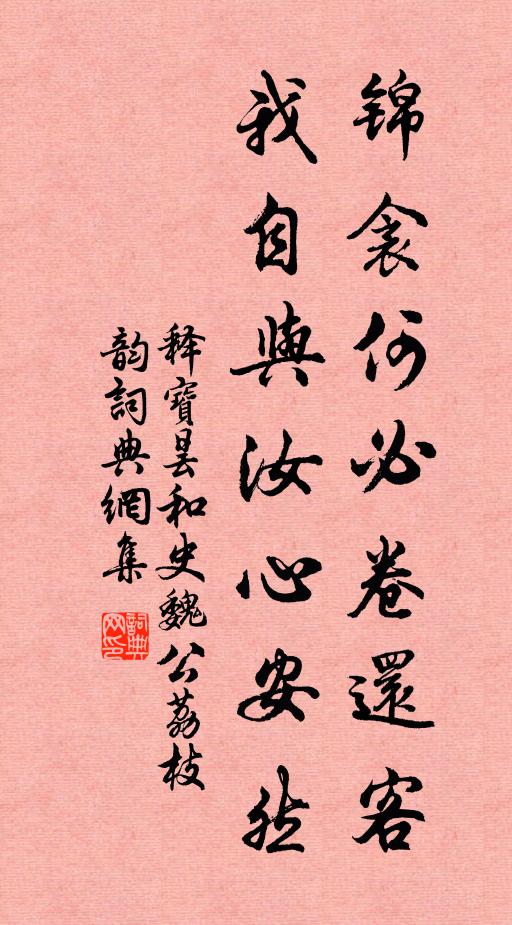 锦衾何必卷還客
我自與汝心安然
释寶昙和史魏公荔枝
韵詞典網集
詞典网印